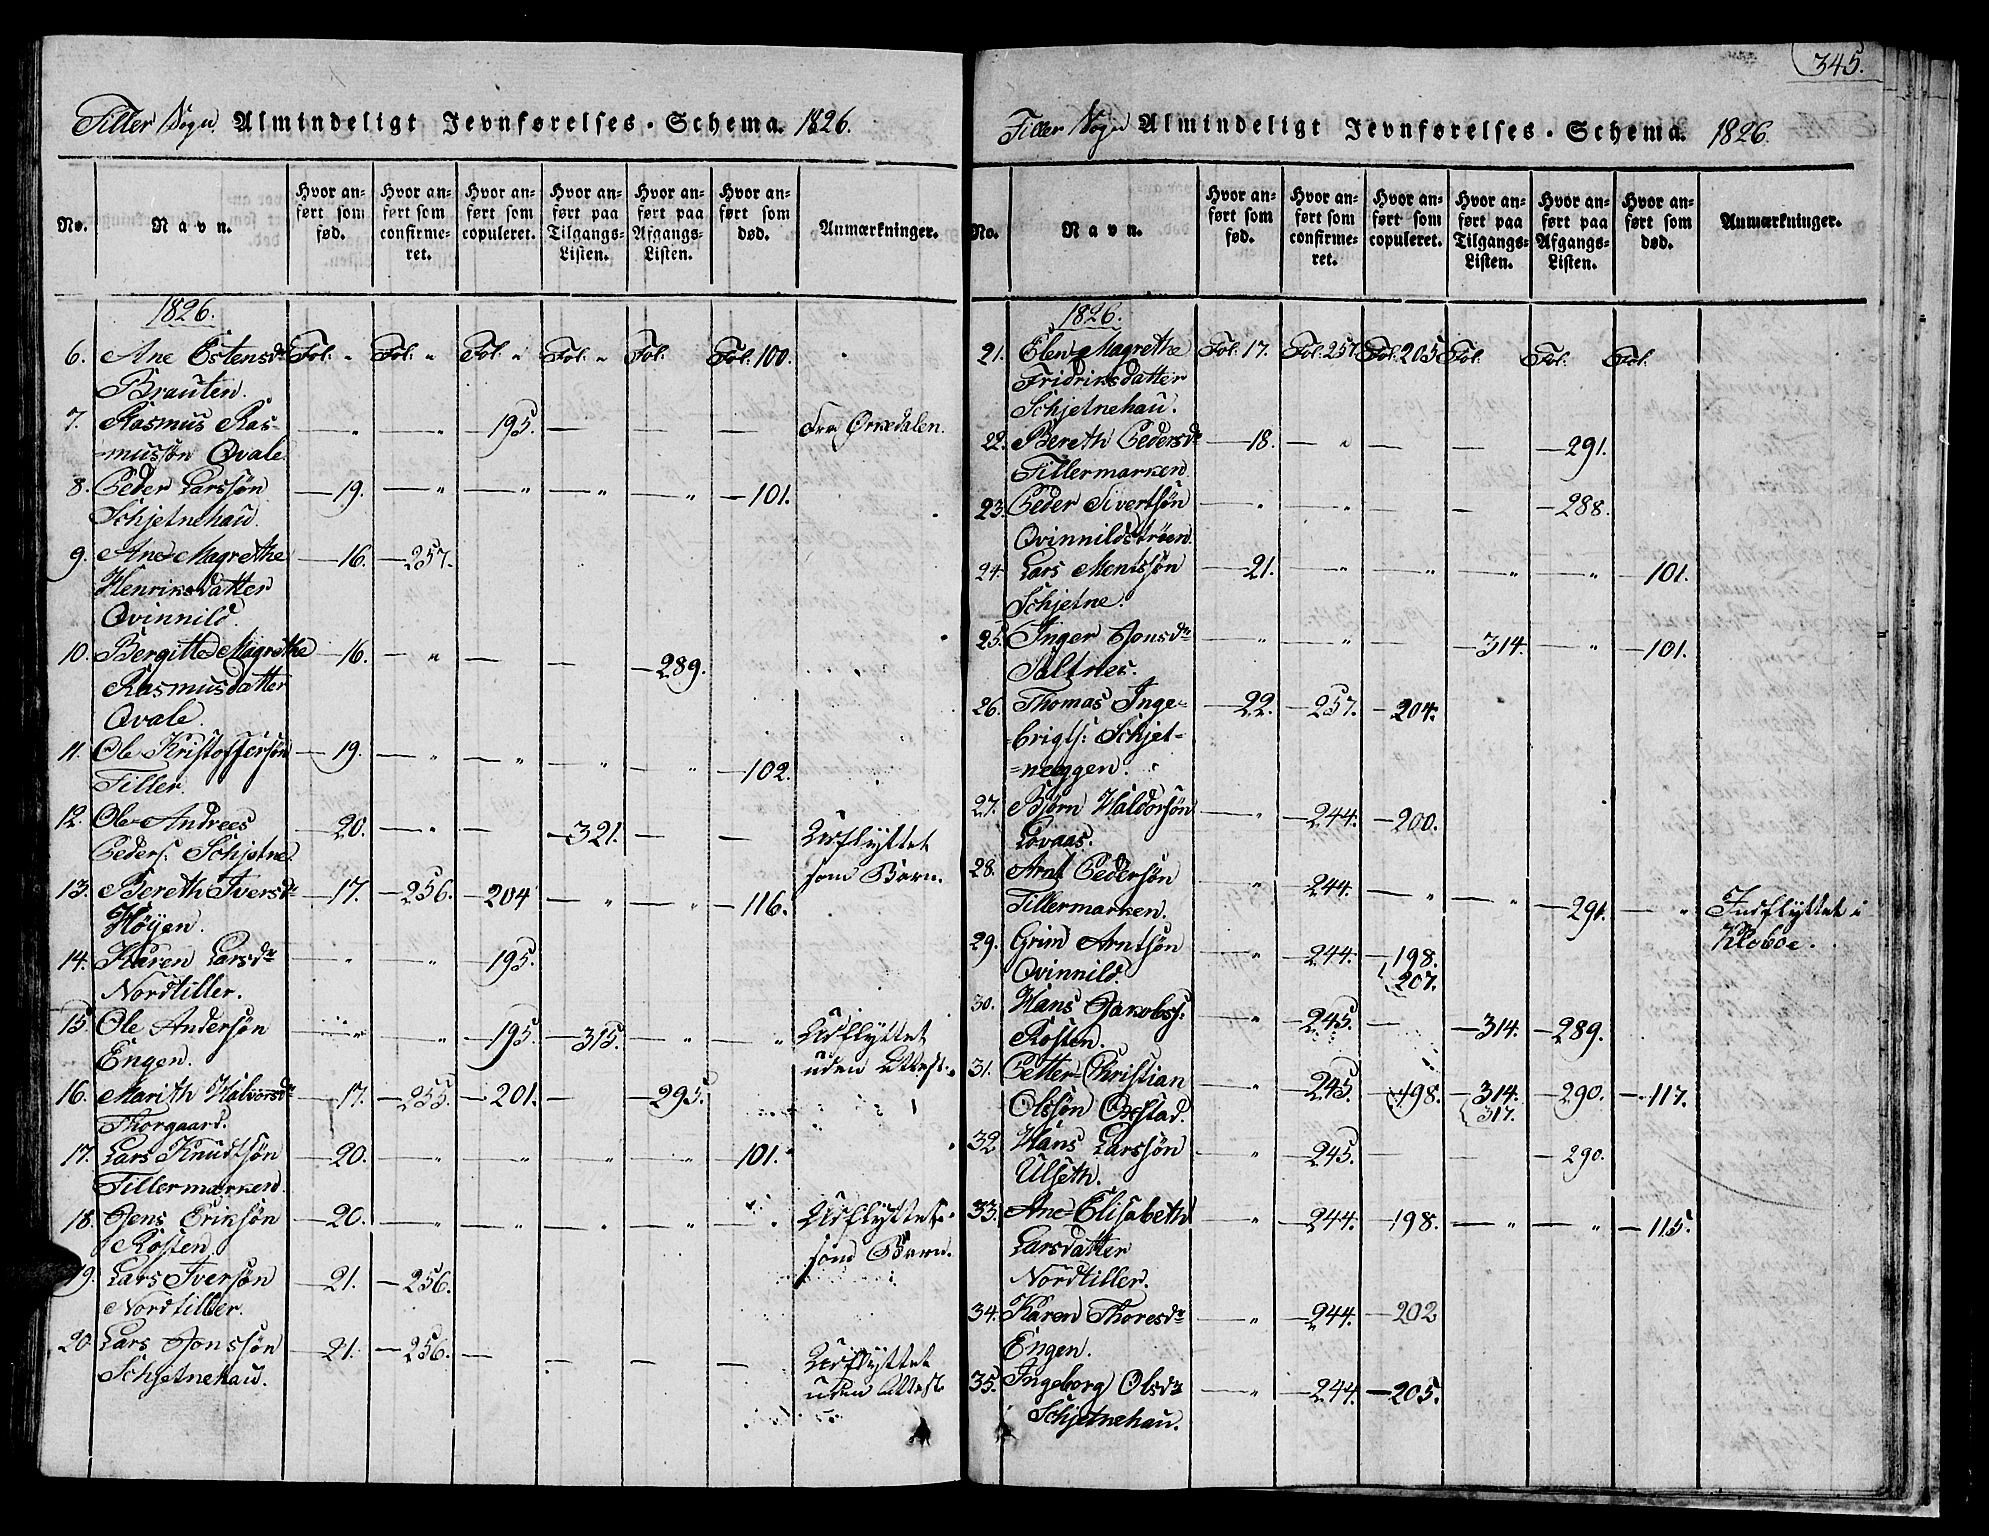 Tiller Sogn Almindeligt Jevnførelses-Schema. 1826.
No. Navn. Hvor anført som fød. Hvor anført som confirmeret. Hvor anført som copuleret. Hvor anført paa Tilgangs-Listen. Hvor anført paa Afgangs-Listen. Hvor anført som død. Anmærkninger.
1826.
6. Ane Estensdr Fol. " Fol. " Fol. " Fol. " Fol. Fol. 100.
Brauten.
7. Rasmus Ras- — " — " — 195. — — — Fra Ørkedalen.
mussøn Qvale.
8. Peder Larssøn — 19. — " — " — " — " — 101.
Schjetnehau.
9. Ane Magrethe — 16. — 257.
Henriksdatter
Qvinnild.
10. Bergitte Magrethe — 16. — " — — — 289.
Rasmusdatter
Qvale.
11. Ole Kristoffersøn — 19. — " — " — " — " — 102.
Tiller.
12. Ole Andrees — 20. — " — — 321. — — Udflyttet
Peders: Schjetne. som Barn.
13. Bereth Iversdr — 17. — 256. — 204 — " — " — 116.
Høyen.
14. Karen Larsdr — " — " — 195.
Nordtiller.
15. Ole Andersøn — " — " — 195. — 315. — " — " Udflyttet
Engen. uden Attest.
16. Marith Halvorsdr — 17. — 255. — 201. — — 295.
Thorgaard.
17. Lars Knudtsøn — 20. — " — " — " — " — 101.
Tillermarken.
18. Jens Eriksøn — 20. — " — " — " — " — " Udflyttet
Rosten. som Barn.
19. Lars Iversøn — 21. — 256.
Nordtiller.
20. Lars Jonssøn — 21. — 256. — — — — Udflyttet
Schjetnehau. uden Attest
345.
Tiller Sogn Almindeligt Jevnførelses-Schema. 1826.
No. Navn. Hvor anført som fød. Hvor anført som confirmeret. Hvor anført som copuleret. Hvor anført paa Tilgangs-Listen. Hvor anført paa Afgangs-Listen. Hvor anført som død. Anmærkninger.
1826.
21. Elen Magrethe Fol. 17. Fol. 257. Fol. 205 Fol. Fol. Fol.
Fridriksdatter
Schjetnehau.
22. Bereth Pedersdr — 18. — " — — — 291.
Tillermarken.
23. Peder Sivertsøn — " — " — — — 288.
Qvinnildstrøen.
24. Lars Montssøn — 21. — " — " — " — " — 101.
Schjetne.
25. Inger Jonsdr — " — " — — 314. — " — 101.
Saltnes.
26. Thomas Inge- — 22. — 257. — 204.
=brigts: Schjet-
=neeggen.
27. Bjørn Haldorsøn — " — 244. — 200.
Lovaas.
28. Arnt Pedersøn — " — 244. — " — " — 291. — " Indflyttet i
Tillermarken. Kleboe.
29. Grim Arntsøn — " — 244. — 198.
Qvinnild. 207.
30. Hans Jakobss: — " — 245. — — 314. — 289.
Rosten.
31. Petter Christian — " — 245. — 198. — 314. — 290. — 117.
Olssøn Oxstad. 317.
32. Hans Larssøn — " — 245. — — — 290.
Ulseth.
33. Ane Elisabeth — " — 244. — 198. — " — " — 115.
Larsdatter
Nordtiller.
34. Karen Thoresdr — " — 244. — 202
Engen.
35. Ingeborg Olsdr — " — 244. — 205.
Schjetnehau.